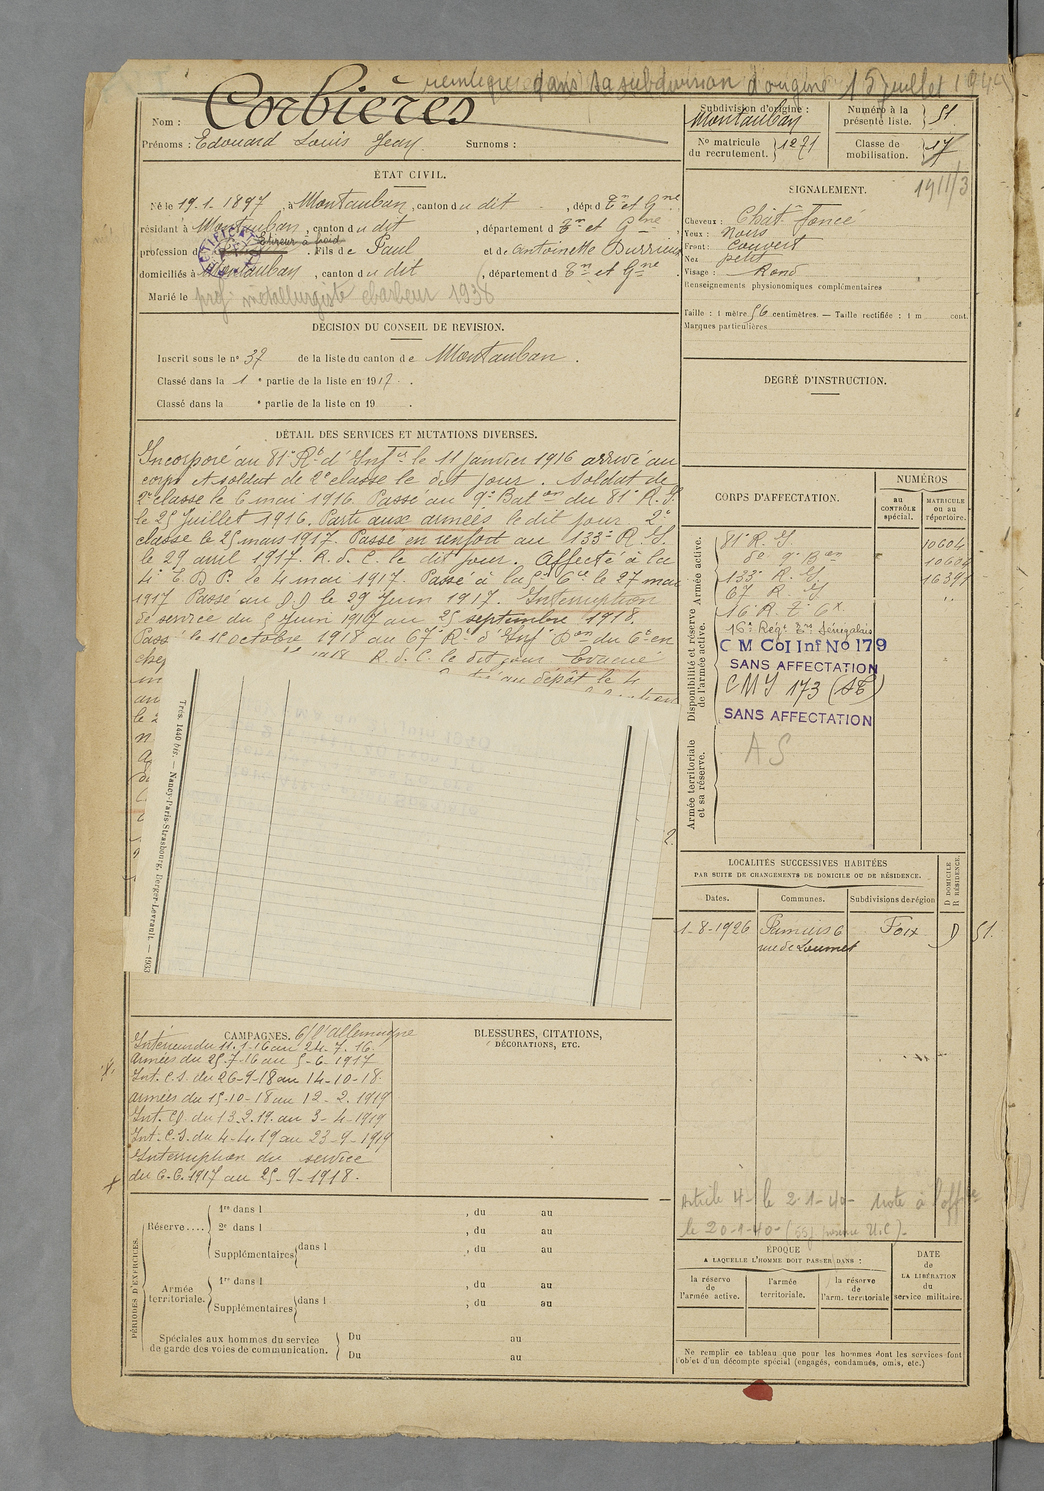 réintégré dans sa subdivision d'origine 15 juillet 194
Nom : Corbières
Prénoms : Edouard Louis Jean Surnoms :
Subdivision d'origine : Montauban
Numéro à la présente liste. 51
No matricule du recrutement. 1271
Classe de mobilisation. 17
1911/3
ÉTAT CIVIL.
Né le 19.1.1897, à Montauban, canton du dit, dépt d Tn et Gne
résidant à Montauban, canton du dit, département d Tn et Gne
profession d
Fils de Paul et de Antoinette Durrieu
domiciliés à Montauban, canton du dit, département d Tn et Gne
Marié le
prof: métallurgiste 1938
SIGNALEMENT.
Cheveux : Chât. foncé
Yeux : Noirs
Front : Couvert
Nez petit
Visage : Rond
Renseignements physionomiques complémentaires
Taille : 1 mètre 56 centimètres. — Taille rectifiée : 1 m cent.
Marques particulières
DÉCISION DU CONSEIL DE REVISION.
Inscrit sous le no 37 de la liste du canton de Montauban.
Classé dans la 1 e partie de la liste en 1917.
Classé dans la e partie de la liste en 19 .
DEGRÉ D'INSTRUCTION.
DÉTAIL DES SERVICES ET MUTATIONS DIVERSES.
Incorporé au 81e Rt d'Infie le 11 janvier 1916 arrivé au
corps et soldat de 2e classe le dit jour. Soldat de
2e classe le 6 mai 1916. Passé au 9e Baton du 81e R.I.
le 25 Juillet 1916. Parti aux armées le dit jour. 2e
classe le 25 mars 1917. Passé en renfort au 133e R.I.
le 29 avril 1917. R.d.C. le dit jour. Affecté à la
4e E.D.P. le 4 mai 1917. Passé à la Cie le 27 mai
1917 Passé au le 29 Juin 1917. Interruption
de service du 5 Juin 1917 au 25 septembre 1918.
Passé le 15 octobre 1918 au 67e Rt d'Inf
R.d.C. le dit jour Evacué
au dépôt le 4
CORPS D'AFFECTATION.
NUMÉROS
au CONTRÔLE spécial.
MATRICULE ou au répertoire.
Armée active.
81e R.I. 10604
do 9e Bon 10604
133e R.I. 16391
67 R.I.
Disponibilité et réserve de l'armée active.
16e Régt Tirs Sénégalais
C M Col Inf No 179
SANS AFFECTATION
CMI 173 (SE)
SANS AFFECTATION
Armée territoriale et sa réserve.
A S
Trés. 1440 bis. — Nancy-Paris-Strasbourg, Berger-Levrault. — 1933
LOCALITÉS SUCCESSIVES HABITÉES
PAR SUITE DE CHANGEMENTS DE DOMICILE OU DE RÉSIDENCE.
Dates. Communes. Subdivisions de région D DOMICILE R RÉSIDENCE.
1-8-1926 Pamiers 6 rue de Loumet Foix D 51.
CAMPAGNES. c/ l'Allemagne
Intérieur du 11.1.16 au 24.7.16
armées du 25-7-16 au 5-6-1917
Int. C.S. du 26-9-18 au 14-10-18
armées du 15-10-18 au 12-2-1919
Int. CD. du 13.2.19. au 3-4-1919
Int. C.S. du 4-4.19 au 23-9-1919
Interruption du service
du 6-6.1917 au 25-9-1918.
BLESSURES, CITATIONS,
DÉCORATIONS, ETC.
article 4 le 2-1-40 note à l'
le 20-1-40
PÉRIODES D'EXERCICES.
Réserve .... 1re dans l , du au
2e dans l , du au
Supplémentaires dans l , du au
Armée territoriale. 1re dans l , du au
Supplémentaires dans l , du au
Spéciales aux hommes du service de garde des voies de communication. Du au
Du au
ÉPOQUE
A LAQUELLE L'HOMME DOIT PASSER DANS :
la réserve de l'armée active.
l'armée territoriale.
la réserve de l'arm. territoriale
DATE de LA LIBÉRATION du service militaire.
Ne remplir ce tableau que pour les hommes dont les services font l'objet d'un décompte spécial (engagés, condamnés, omis, etc.)